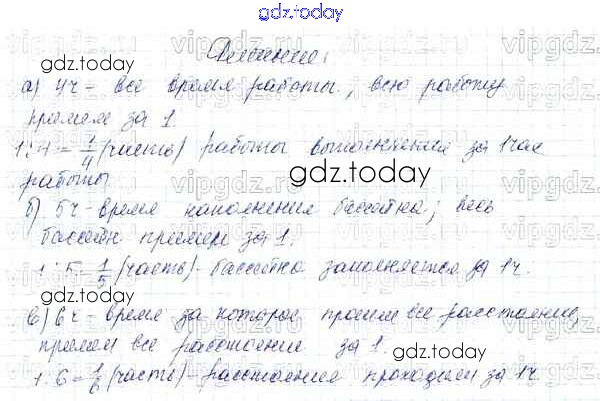 gdz.today
Решение:
а) 4ч - все время работы, всю работу
примем за 1.
1:4=1/4 (часть) работы выполнения за 1 час
работы
б) 5ч - время наполнения бассейна; весь
бассейн примем за 1.
1:5=1/5 (часть) - бассейна заполняется за 1ч.
в) 6ч - время за которое прошли все расстояние,
примем все расстояние за 1.
1:6=1/6 (часть) - расстояния проходим за 1ч